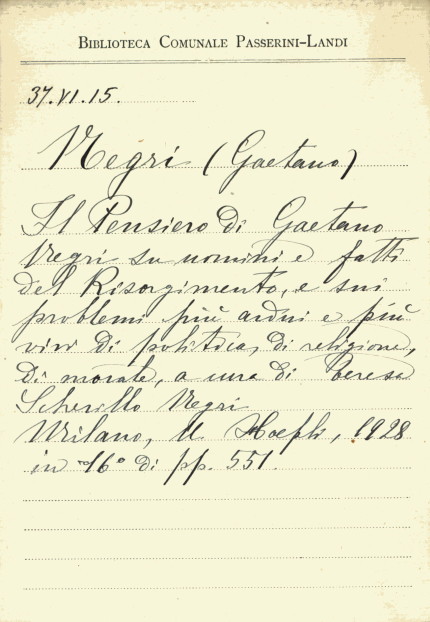 BIBLIOTECA COMUNALE PASSERINI-LANDI
37.VI.15.
Negri (Gaetano)
Il Pensiero di Gaetano
Negri su uomini e fatti
del Risorgimento, e sui
problemi più ardui e più
vivi di politica, di religione,
di morale, a cura di Teresa
Scherillo Negri
Milano, U. Hoepli, 1928
in 16° di pp. 551.